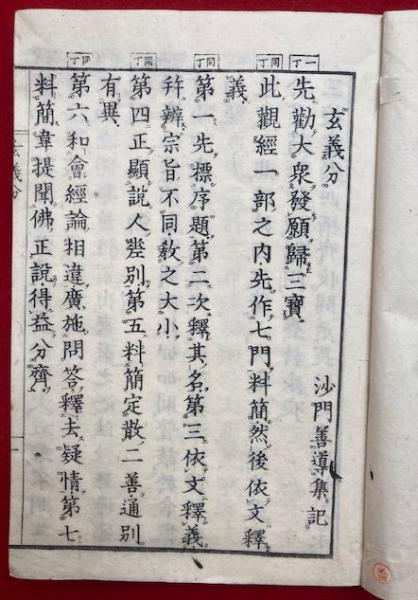 玄義分
沙門善導集記
一丁
先勸大衆發願歸三寶
同丁
此觀經一部之内先作七門料簡然後依文釋
義
同丁
第一先標序題第二次釋其名第三依文釋義
幷辨宗旨不同教之大小
同丁
第四正顯說人差別第五料簡定散二善通別
有異
同丁
第六和會經論相違廣施問答釋去疑情第七
料簡韋提聞佛正說得益分齊
玄義分